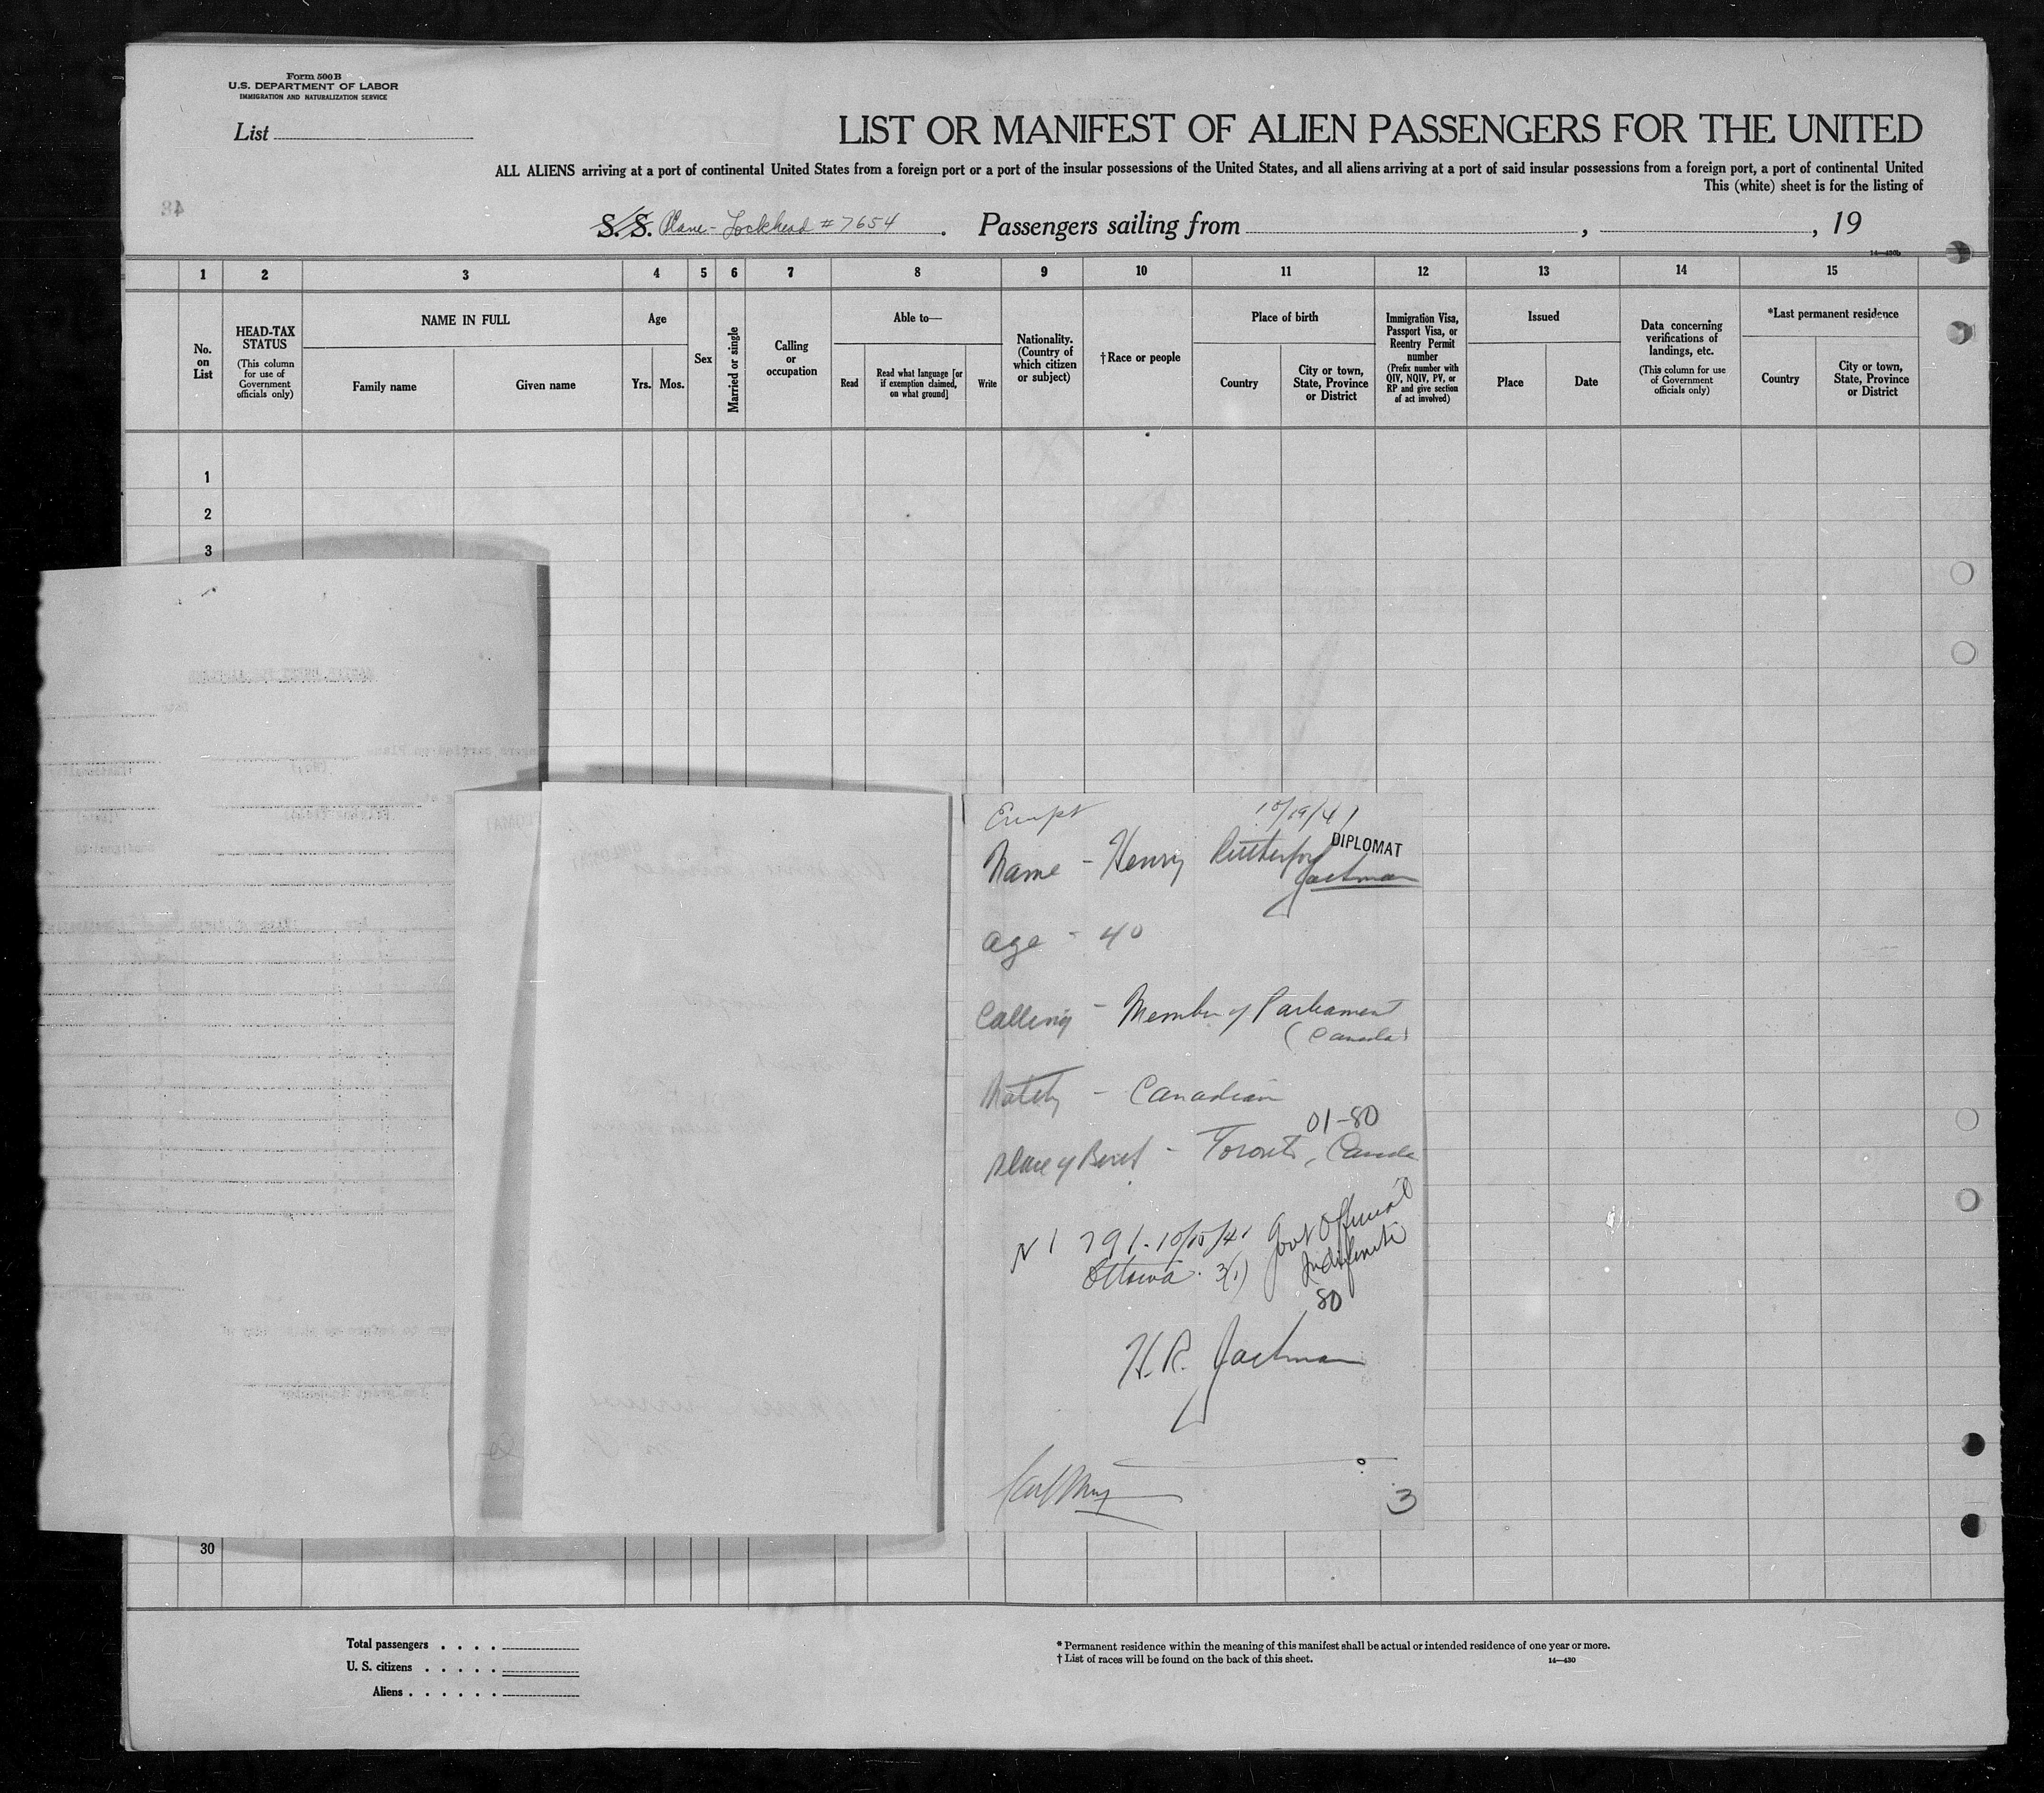 Form 500 B
U.S. DEPARTMENT OF LABOR
IMMIGRATION AND NATURALIZATION SERVICE
List
LIST OR MANIFEST OF ALIEN PASSENGERS FOR THE UNITED
ALL ALIENS arriving at a port of continental United States from a foreign port or a port of the insular possessions of the United States, and all aliens arriving at a port of said insular possessions from a foreign port, a port of continental United
This (white) sheet is for the listing of
S. S. Plane - Lockhead # 7654 . Passengers sailing from , , 19
14—430b
1 2 3 4 5 6 7 8 9 10 11 12 13 14 15
No. on List
HEAD-TAX STATUS
(This column for use of Government officials only)
NAME IN FULL
Family name
Given name
Age
Yrs.
Mos.
Sex
Married or single
Calling or occupation
Able to—
Read
Read what language [or if exemption claimed, on what ground]
Write
Nationality. (Country of which citizen or subject)
† Race or people
Place of birth
Country
City or town, State, Province or District
Immigration Visa, Passport Visa, or Reentry Permit number
(Prefix number with QIV, NQIV, PV, or RP and give section of act involved)
Issued
Place
Date
Data concerning verifications of landings, etc.
(This column for use of Government officials only)
*Last permanent residence
Country
City or town, State, Province or District
1
2
3
Exempt 10/19/41
DIPLOMAT
Name - Henry Rutherford
Jackman
Age - 40
Calling - Member of Parliament
(Canada)
Natlty - Canadian
01-80
Place of Birth - Toronto, Canada
791 - 10/10/41 Govt Official
Ottawa 3(1) Indefinite
80
H. R. Jackman
3
30
Total passengers . . . .
U. S. citizens . . . . .
Aliens . . . . . .
* Permanent residence within the meaning of this manifest shall be actual or intended residence of one year or more.
† List of races will be found on the back of this sheet.
14—430